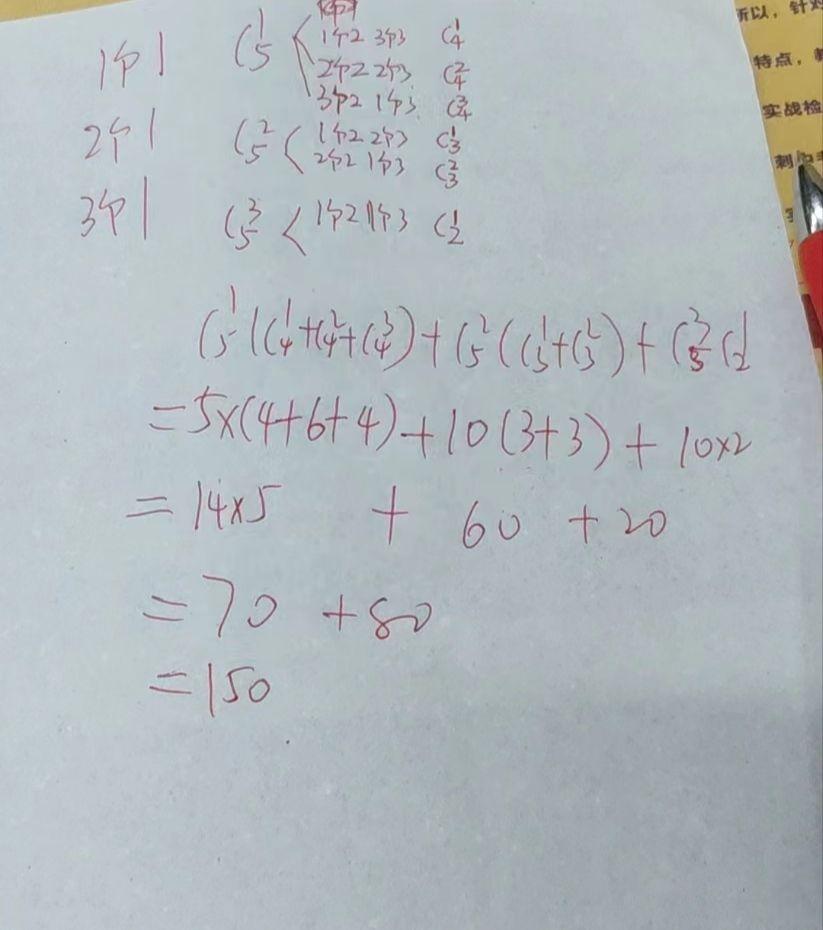 1个1 C₅¹ 1个2 3个3 C₄¹
2个2 2个3 C₄²
3个2 1个3 C₄³
2个1 C₅² 1个2 2个3 C₃¹
2个2 1个3 C₃²
3个1 C₅³ 1个2 1个3 C₂¹
C₅¹(C₄¹+C₄²+C₄³)+C₅²(C₃¹+C₃²)+C₅³C₂¹
=5×(4+6+4)+10(3+3)+10×2
=14×5 + 60 +20
=70 +80
=150
所以，针对
特点，
实战检
刺